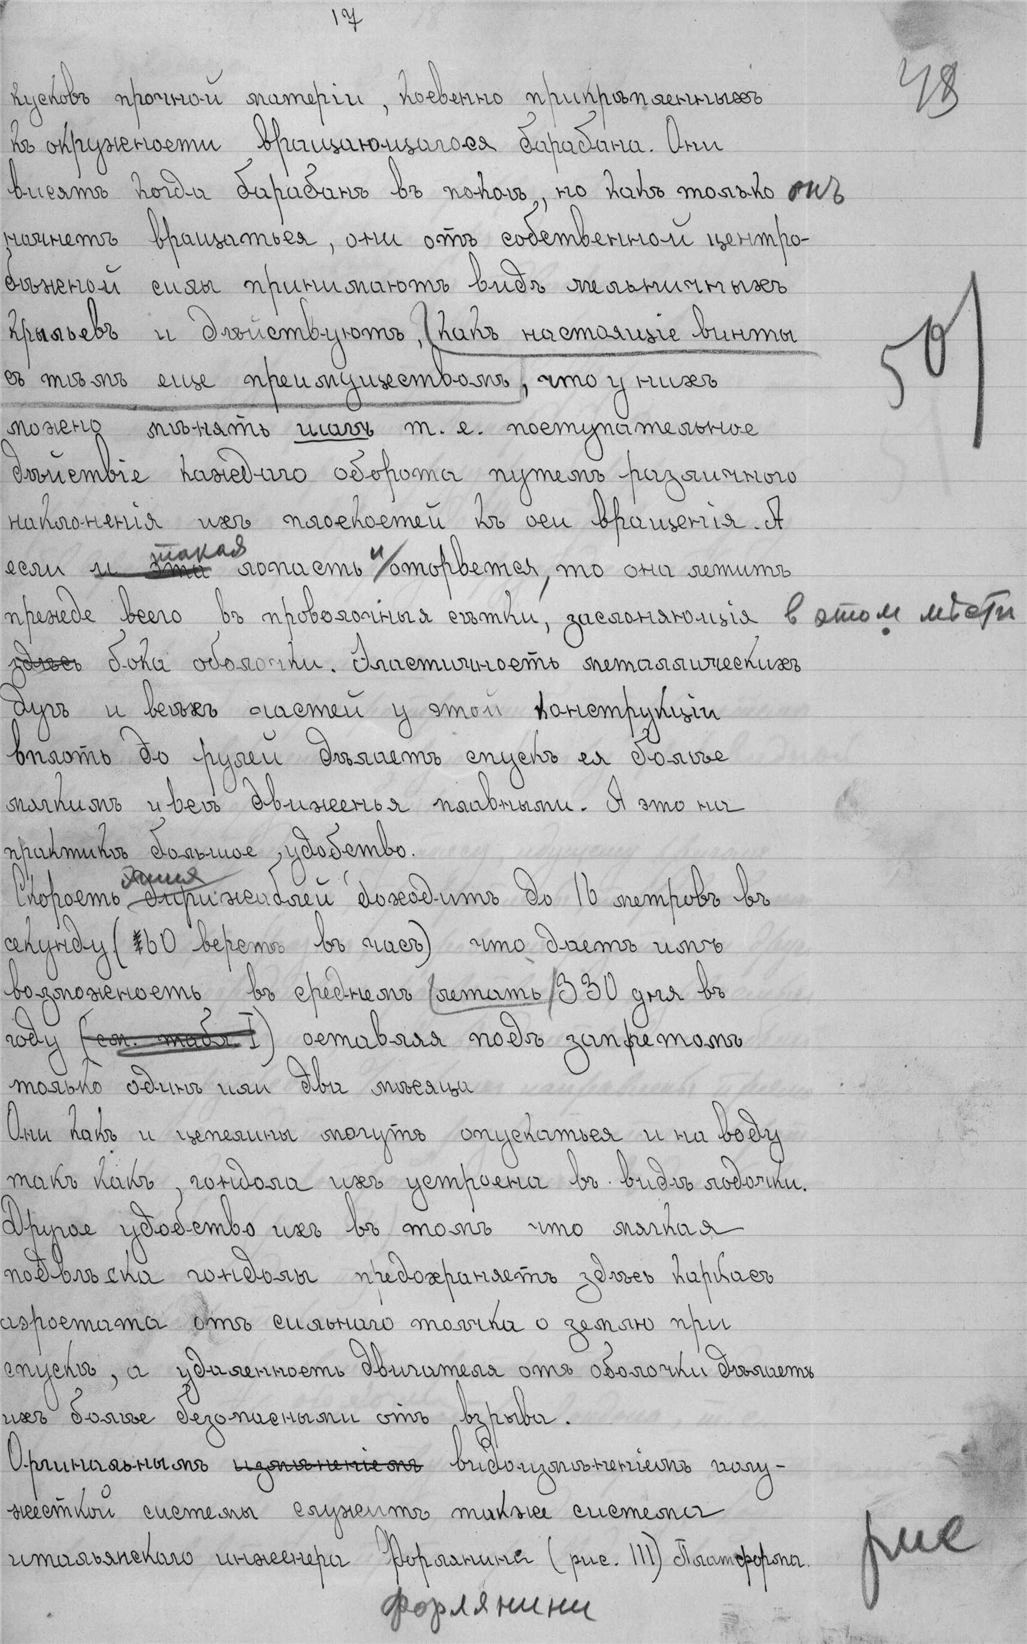 17
48
кусковъ прочной матеріи, косвенно прикрѣпленныхъ
къ окружности вращающагося барабана. Они
висятъ когда барабанъ въ покоѣ, но какъ только онъ
начнетъ вращаться, они отъ собственной центро-
бѣжной силы принимаютъ видъ мельничныхъ
крыльевъ и дѣйствуютъ, (какъ настоящіе винты
50
съ тѣмъ еще преимуществомъ, что у нихъ
можно мѣнять шагъ т. е. поступательное
дѣйствіе каждаго оборота путемъ различнаго
наклоненія ихъ плоскостей къ оси вращенія. А
такая и
если и эта лопасть оторвется, то она летитъ
прежде всего въ проволочныя сѣтки, заслоняющія в этом мѣсти
здѣсь бока оболочки. Эластичность металлическихъ
дугъ и всѣхъ частей у этой конструкціи
вплоть до рулей дѣлаетъ спускъ ея болѣе
мягкимъ и всѣ движенья плавными. А это на
практикѣ большое удобство.
Скорость дирижаблей доходитъ до 16 метровъ въ
секунду (60 верстъ въ часъ) что даетъ имъ
возможность въ среднемъ (летать) 330 дня въ
году (см. табл. I) оставляя подъ запретомъ
только одинъ или два мѣсяца
Они какъ и цепелины могутъ опускаться и на воду
такъ какъ, гондола ихъ устроена въ видѣ лодочки.
Другое удобство ихъ въ томъ что мягкая
подвѣска гондолы предохраняетъ здѣсь каркасъ
аэростата отъ сильнаго толчка о землю при
спускѣ, а удаленность двигателя отъ оболочки дѣлаетъ
ихъ болѣе безопасными отъ взрыва.
Оригинальнымъ измѣненіемъ видоизмѣненіемъ полу-
жесткой системы служитъ также система
итальянскаго инженера Форлянини (рис. III) Платформа
рис
Форлянини